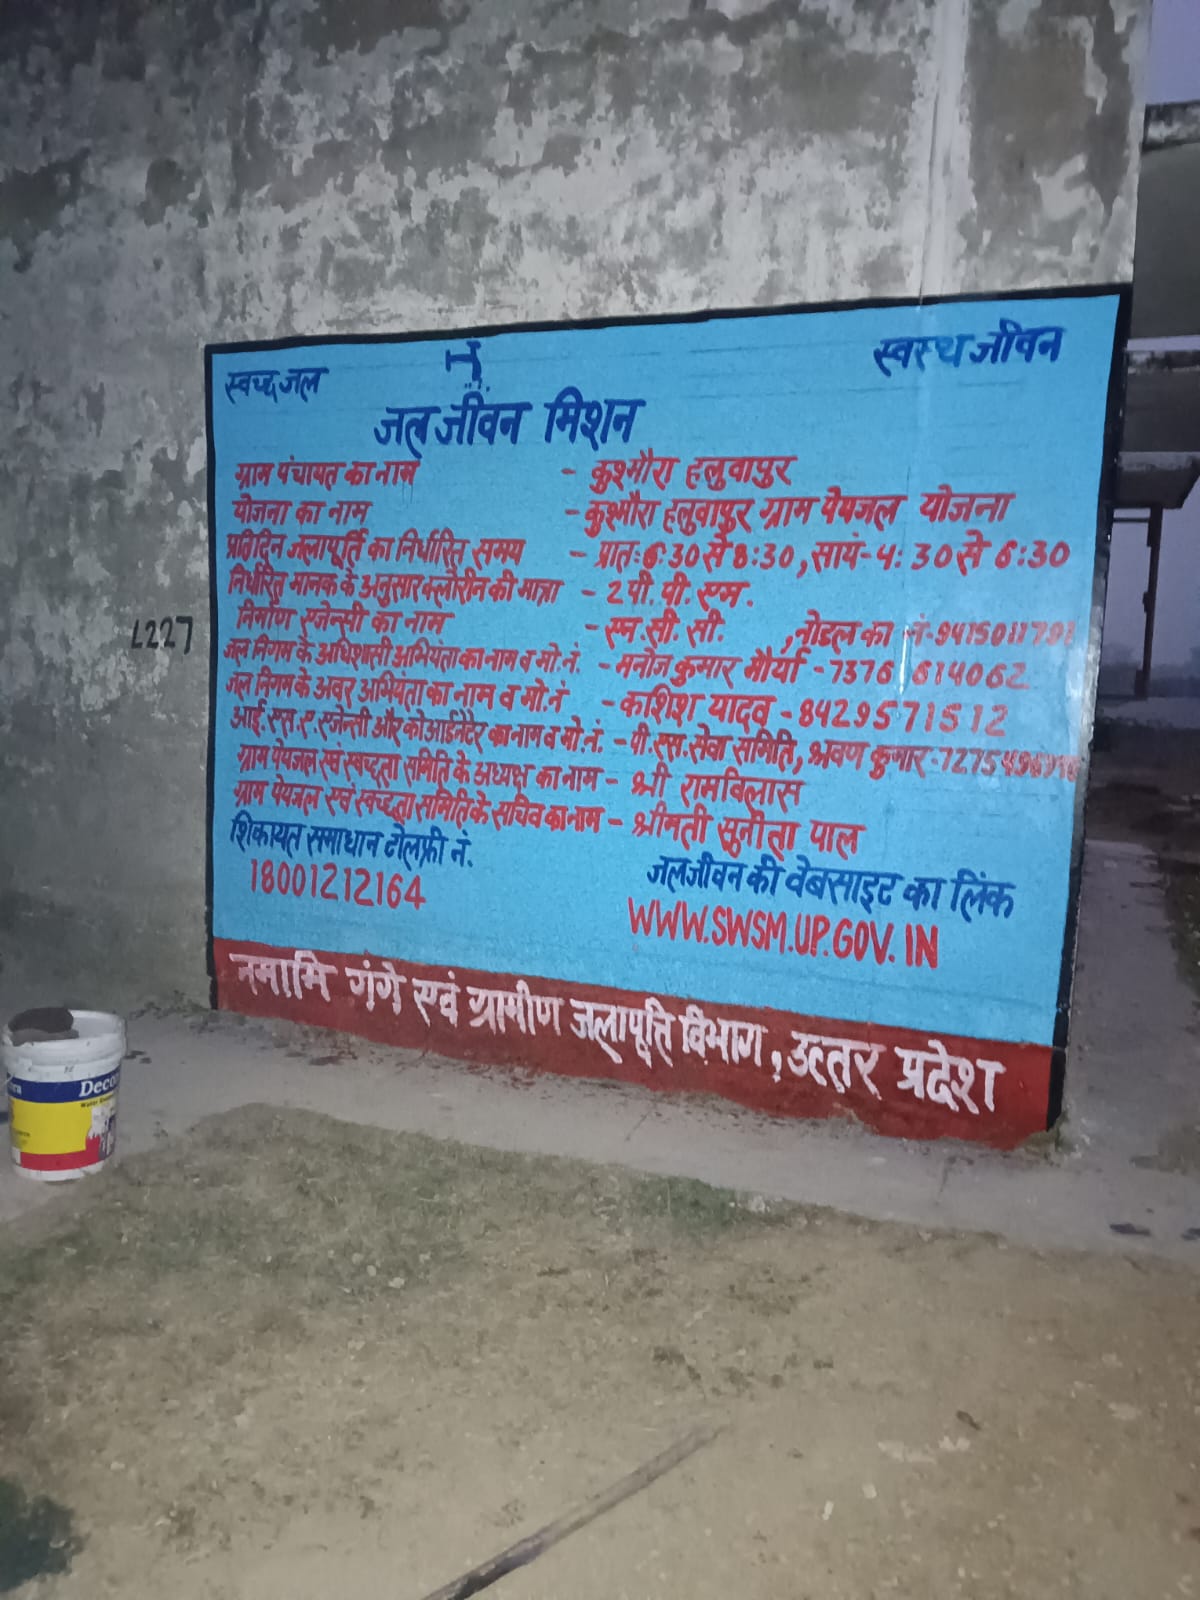 स्वच्छ जल
स्वस्थ जीवन
जल जीवन मिशन
ग्राम पंचायत का नाम - कुश्मौरा हलुवापुर
योजना का नाम - कुश्मौरा हलुवापुर ग्राम पेयजल योजना
प्रतिदिन जलापूर्ति का निर्धारित समय - प्रातः 6:30 से 8:30, सायं-4:30 से 6:30
निर्धारित मानक के अनुसार क्लोरीन की मात्रा - 2 पी. पी. एम.
निर्माण एजेन्सी का नाम - एन. सी. सी. , नोडल का नं-9415011791
जल निगम के अधिशाली अभियंता का नाम व मो. नं. - मनोज कुमार मौर्या - 7376 614062
जल निगम के अवर अभियंता का नाम व मो. नं - कशिश यादव - 8429571512
आई. एस. ए. एजेन्सी और कोआर्डिनेटर का नाम व मो. नं. - पी. एस. सेवा समिति, श्रवण कुमार-
ग्राम पेयजल एवं स्वच्छता समिति के अध्यक्ष का नाम - श्री रामविलास
ग्राम पेयजल एवं स्वच्छता समिति के सचिव का नाम - श्रीमती सुनीता पाल
शिकायत समाधान टोलफ्री नं.
18001212164
जलजीवन की वेबसाइट का लिंक
WWW.SWSM.UP.GOV.IN
नमामि गंगे एवं ग्रामीण जलापूर्ति विभाग, उत्तर प्रदेश
L227
Deco